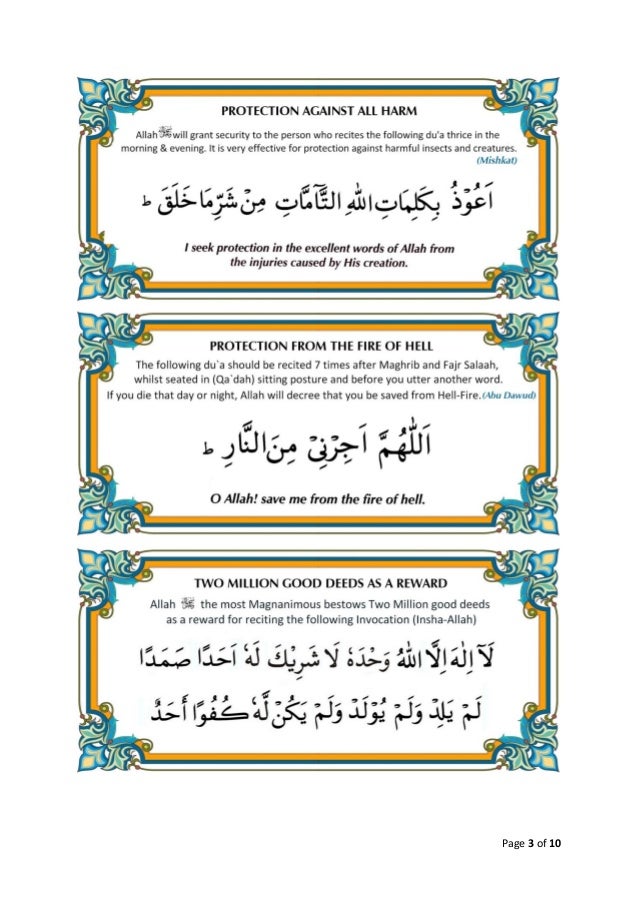 PROTECTION AGAINST ALL HARM
Allah ﷻ will grant security to the person who recites the following du'a thrice in the
morning & evening. It is very effective for protection against harmful insects and creatures.
(Mishkat)
اَعُوْذُ بِكَلِمَاتِ اللهِ التَّآمَّاتِ مِنْ شَرِّ مَا خَلَقَ ط
I seek protection in the excellent words of Allah from
the injuries caused by His creation.
PROTECTION FROM THE FIRE OF HELL
The following du`a should be recited 7 times after Maghrib and Fajr Salaah,
whilst seated in (Qa`dah) sitting posture and before you utter another word.
If you die that day or night, Allah will decree that you be saved from Hell-Fire. (Abu Dawud)
اَللّٰهُمَّ اَجِرْنِيْ مِنَ النَّارِ ط
O Allah! save me from the fire of hell.
TWO MILLION GOOD DEEDS AS A REWARD
Allah ﷻ the most Magnanimous bestows Two Million good deeds
as a reward for reciting the following Invocation (Insha-Allah)
لَآ اِلٰهَ اِلَّا اللهُ وَحْدَهٗ لَا شَرِيْكَ لَهٗ اَحَدًا صَمَدًا
لَمْ يَلِدْ وَلَمْ يُوْلَدْ وَلَمْ يَكُنْ لَّهٗ كُفُوًا أَحَدٌ
Page 3 of 10